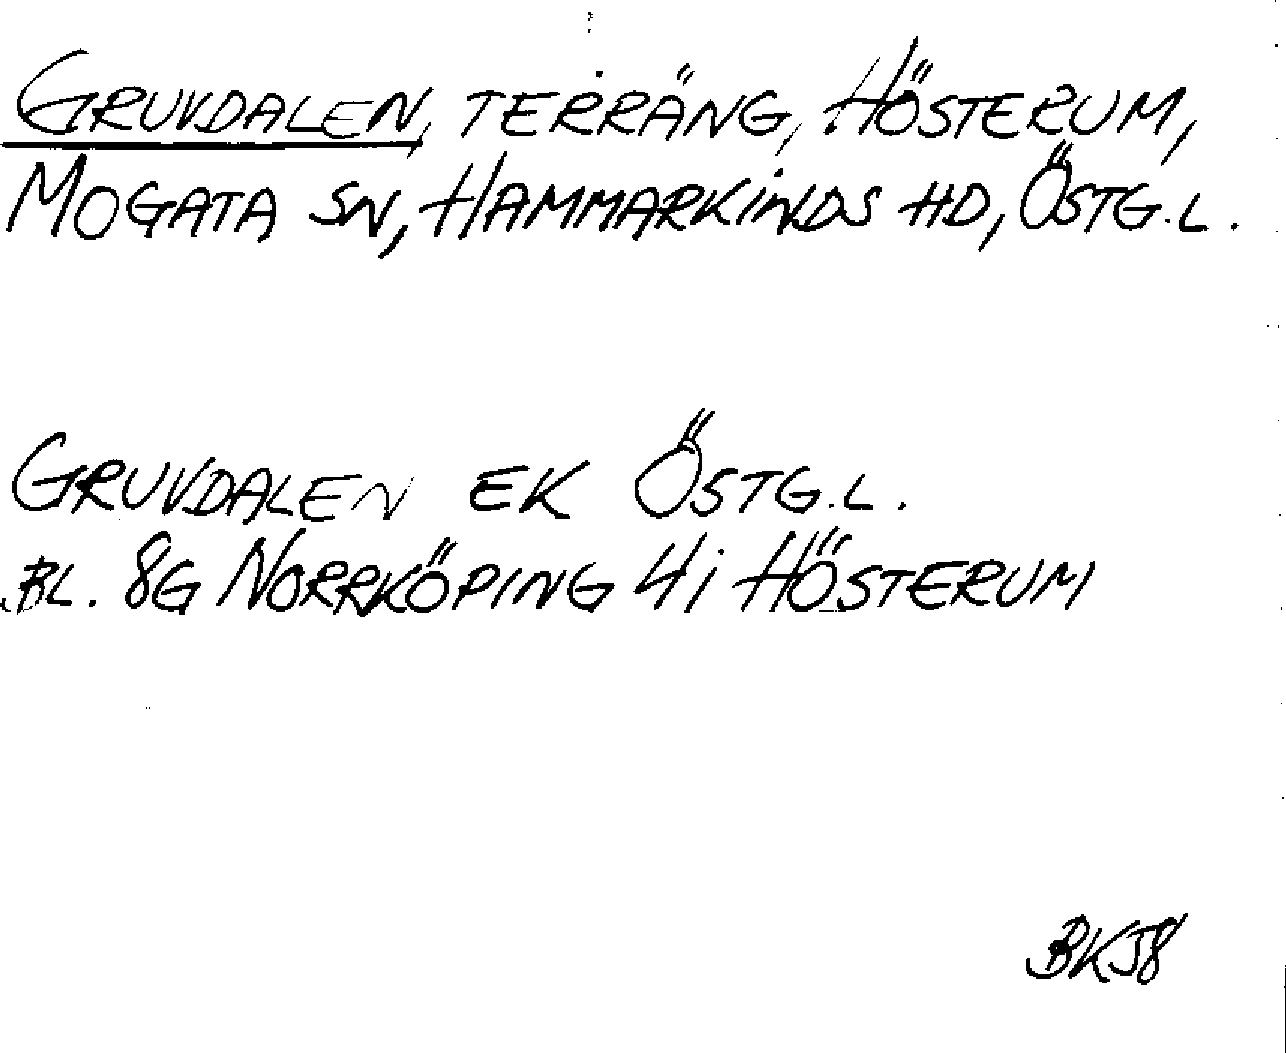 GRUVDALEN, TERRÄNG, HÖSTERUM,
MOGATA SN, HAMMARKINDS HD, ÖSTG.L.
GRUVDALEN EK ÖSTG.L.
BL. 8G NORRKÖPING 4i HÖSTERUM
BKJ8